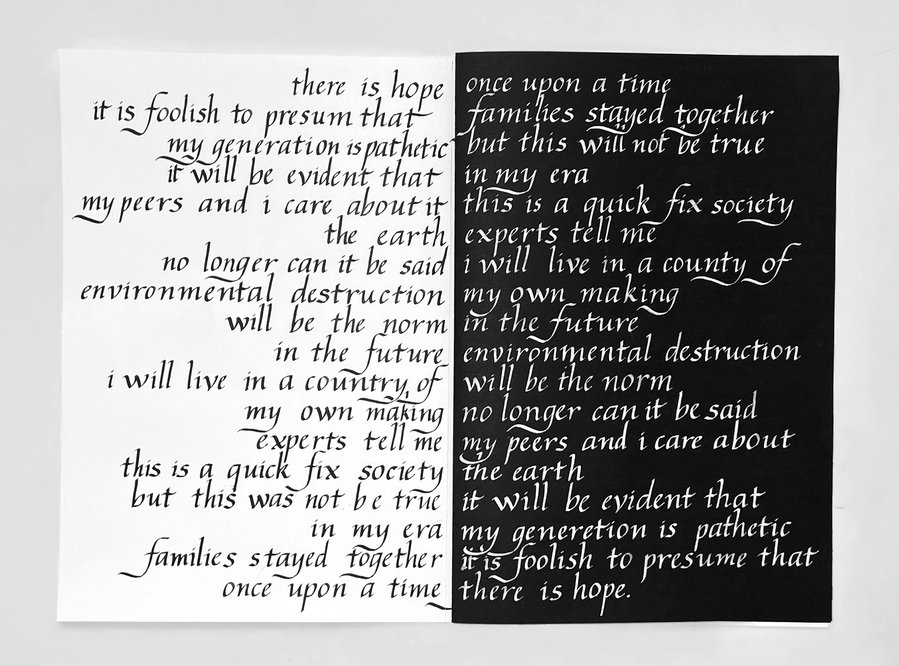 there is hope
it is foolish to presum that
my generation is pathetic
it will be evident that
my peers and i care about it
the earth
no longer can it be said
environmental destruction
will be the norm
in the future
i will live in a country, of
my own making
experts tell me
this is a quick fix society
but this was not be true
in my era
families stayed together
once upon a time
once upon a time
families stayed together
but this will not be true
in my era
this is a quick fix society
experts tell me
i will live in a county of
my own making
in the future
environmental destruction
will be the norm
no longer can it be said
my peers and i care about
the earth
it will be evident that
my generetion is pathetic
it is foolish to presume that
there is hope.